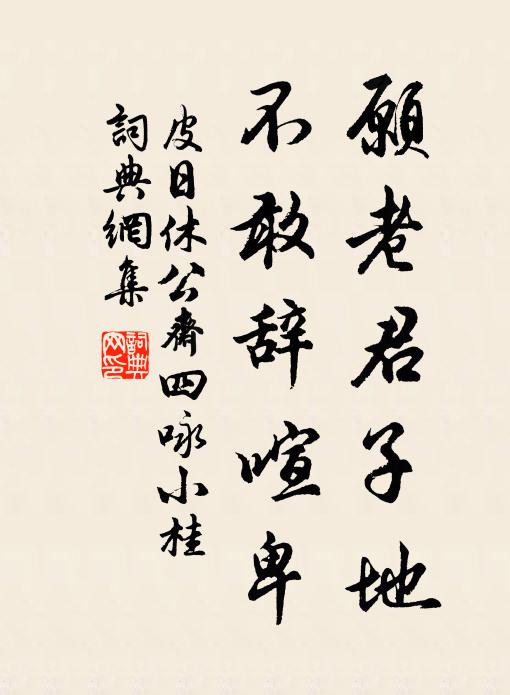 願老君子地
不敢辞喧卑
皮日休公齋四咏小桂
詞典網集
詞典
网印